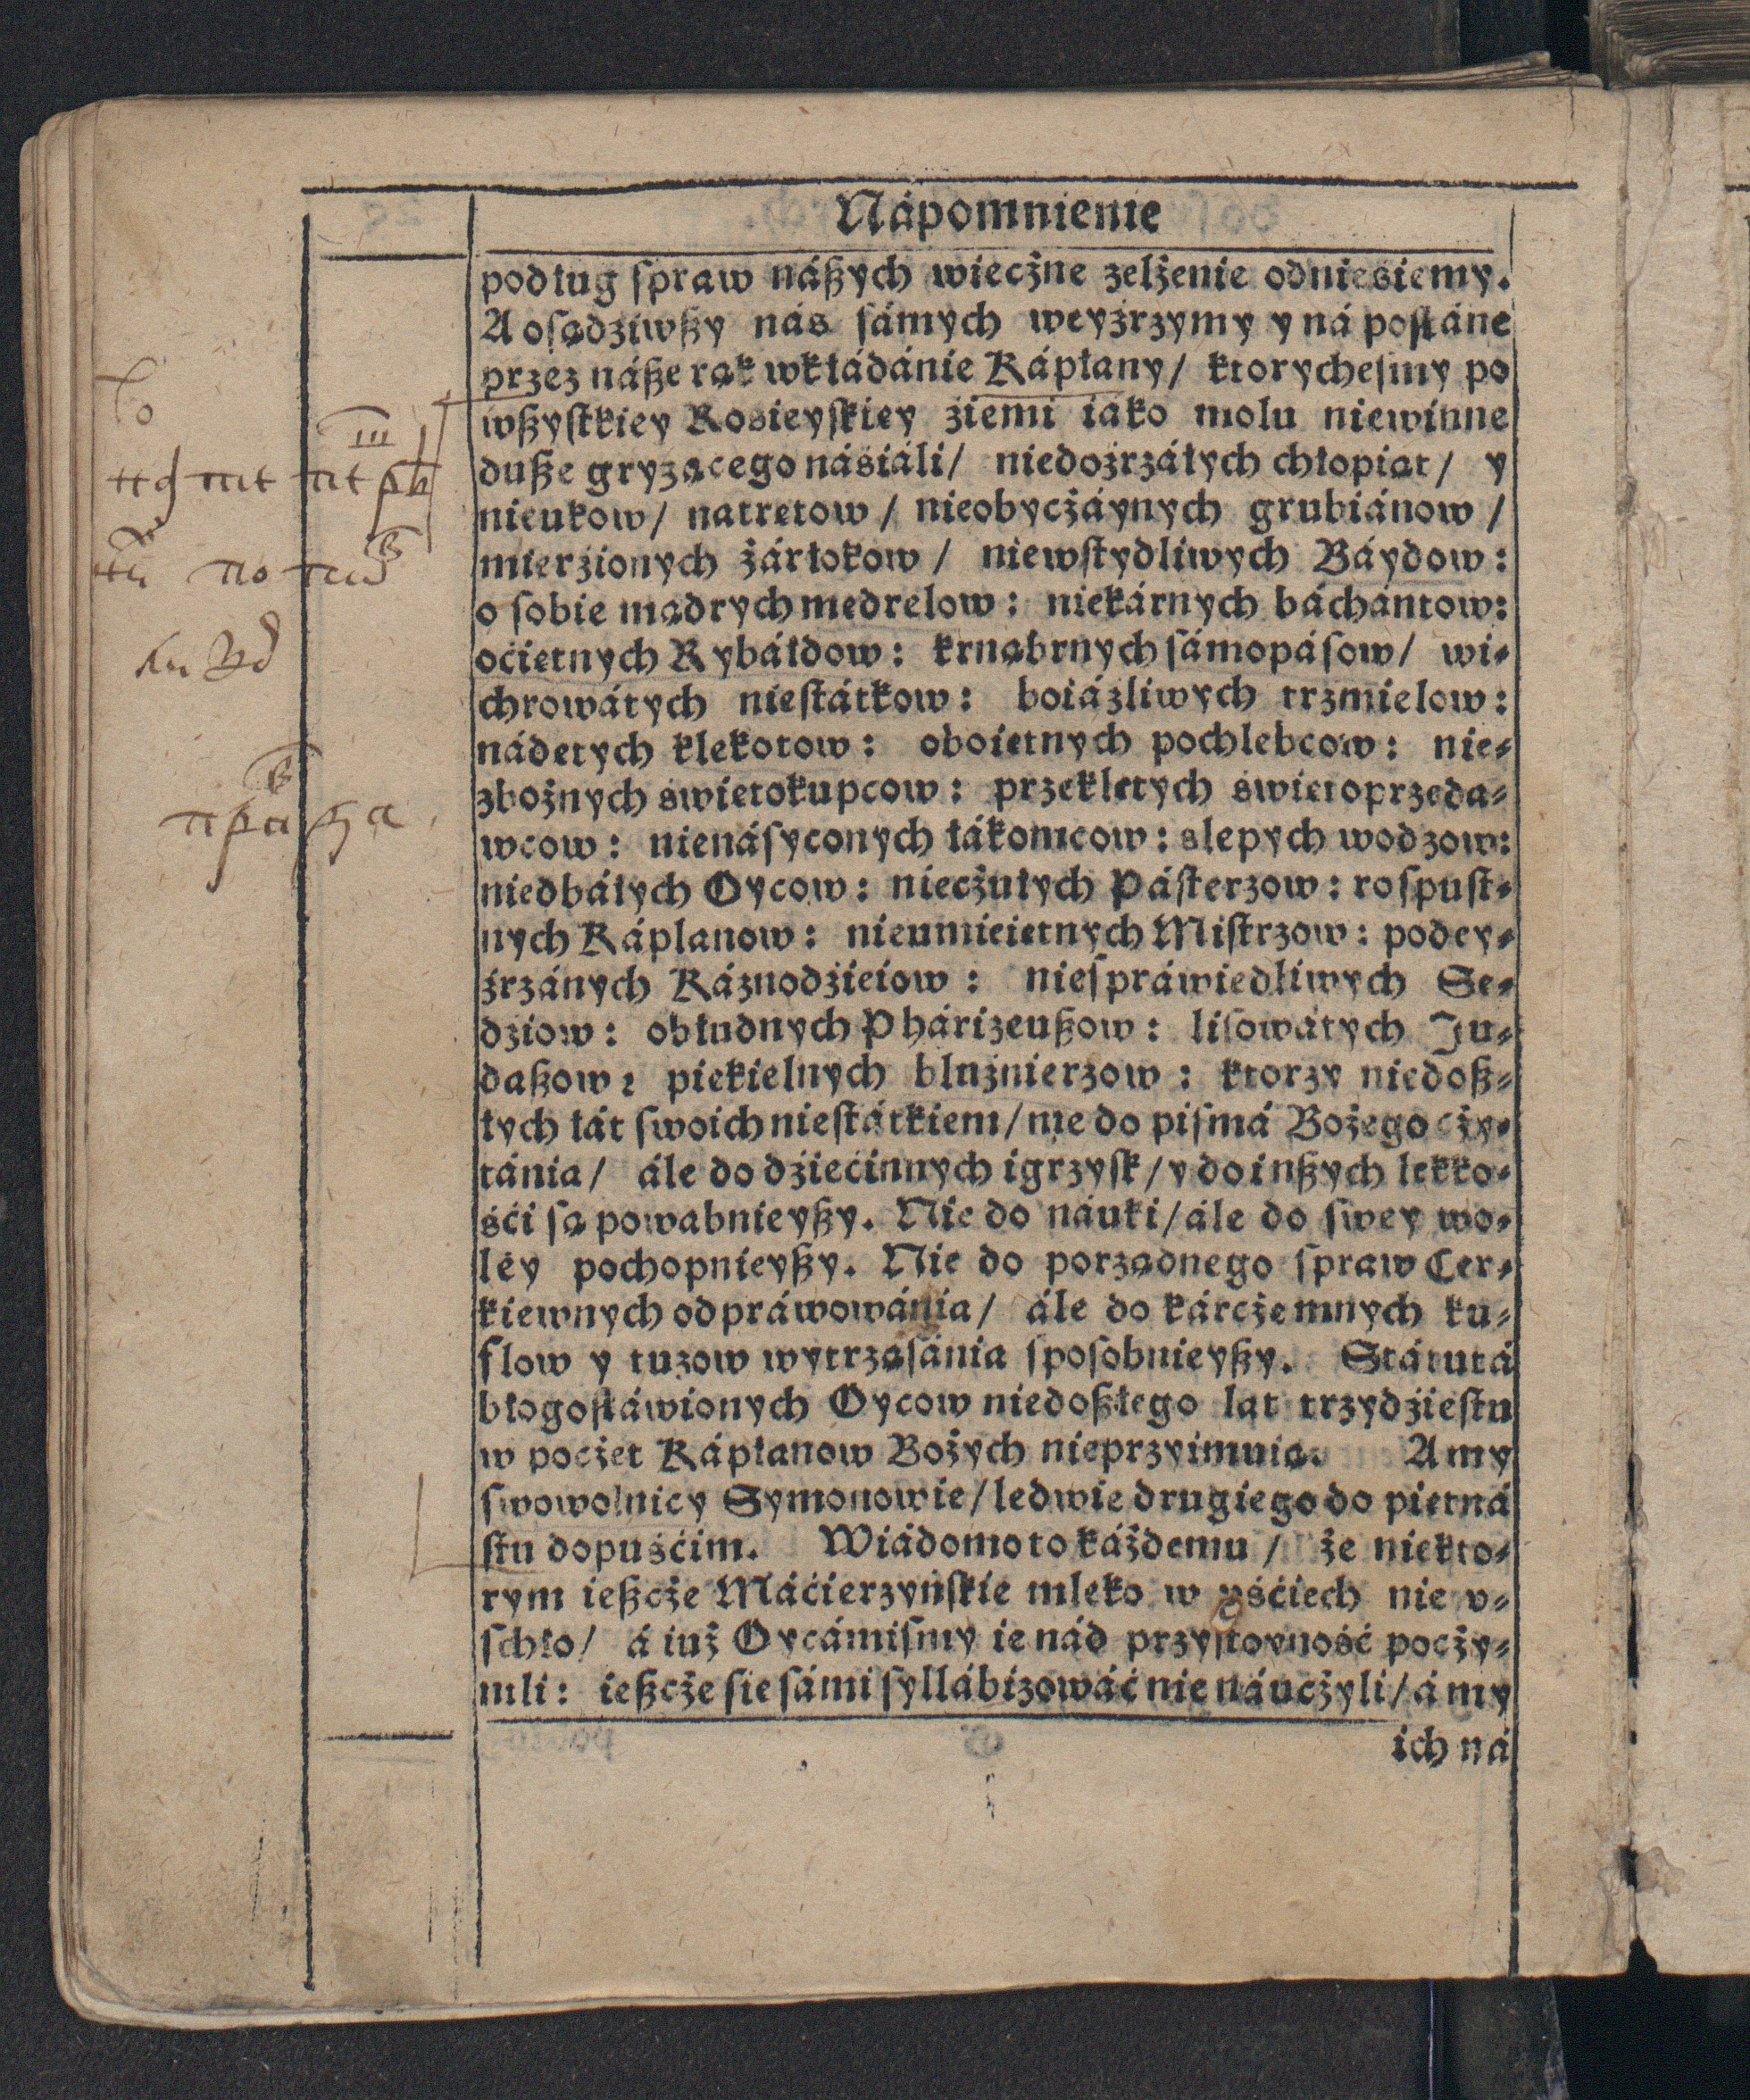 Nápomnienie
podług ſpraw náßych wiecżne zelżenie odnieśiemy.
A oſądziwßy nás ſámych weyźrzymy y ná poſłáne
przez náße rąk wkłádánie Kápłany/ ktorycheſmy po
wßyſtkiey Rośieyſkiey ziemi iáko molu niewinne
duße gryzącego náśiáli/ niedoźrzáłych chłopiąt/ y
nieukow/ natrętow/ nieobycżáynych grubiánow/
mierźionych żárłokow/ niewſtydliwych Báydow:
o ſobie mądrych mędrelow: niekárnych báchántow:
oćiętnych Rybáłdow: krnąbrnych ſámopáſow/ wi⸗
chrowátych nieſtátkow: boiáźliwych trzmielow:
nádętych klekotow: oboiętnych pochlebcow: nie⸗
zbożnych świętokupcow: przeklętych świętoprzeda⸗
wcow: nienáſyconych łákomcow: ślepych wodzow:
niedbáłych Oycow: niecżułych Páſterzow: roſpuſt⸗
nych Káplanow: nieumieiętnych Miſtrzow: podey⸗
źrzánych Káznodźieiow: nieſpráwiedliwych Sę⸗
dźiow: obłudnych Phárizeußow: liſowátych Ju⸗
daßow: piekielnych bluźnierzow: ktorzy niedoß⸗
łych łát ſwoich nieſtátkiem/ nie do piſmá Bożego cży⸗
tánia/ ále do dźiećinnych igrzyſk/ y do inßych lekko⸗
śći ſą powabnieyßy. Nie do náuki/ ále do ſwey wo⸗
ley pochopnieyßy. Nie do porządnego ſpraw Cer⸗
kiewnych odpráwowánia/ ále do kárcżemnych ku⸗
flow y tuzow wytrząſánia ſpoſobnieyßy. Státutá
błogoſłáwionych Oycow niedoßłego lat trzydźieſtu
w pocżet Kápłanow Bożych nieprzyimuią. A my
ſwowolnicy Symonowie/ ledwie drugiego do piętná
ſtu dopuśćim. Wiádomo to káżdemu/ że niekto⸗
rym ießcże Máćierzyńſkie mleko w vśćiech nie v⸗
ſchło/ á iuż Oycámiſmy ie nád przyſtoyność pocży⸗
nili: ießcże ſie ſámi ſyllábizowáć nie náucżyli/ á my
ich ná